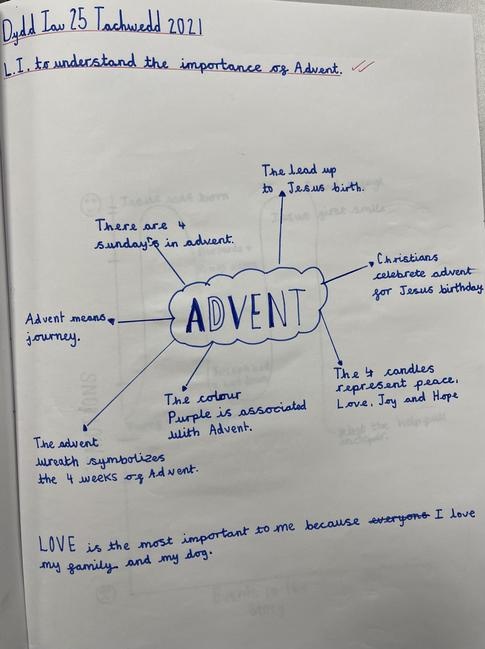 Dydd Iau 25 Tachwedd 2021
L.I. to understand the importance of Advent.
The lead up
to Jesus birth.
There are 4
sunday's in advent.
Christians
celebrete advent
for Jesus birthday
ADVENT
Advent means
journey.
The 4 candles
represent peace,
Love, Joy and Hope
The colour
Purple is associated
with Advent.
The advent
wreath symbolizes
the 4 weeks of Advent.
LOVE is the most important to me because everyone I love
my family and my dog.